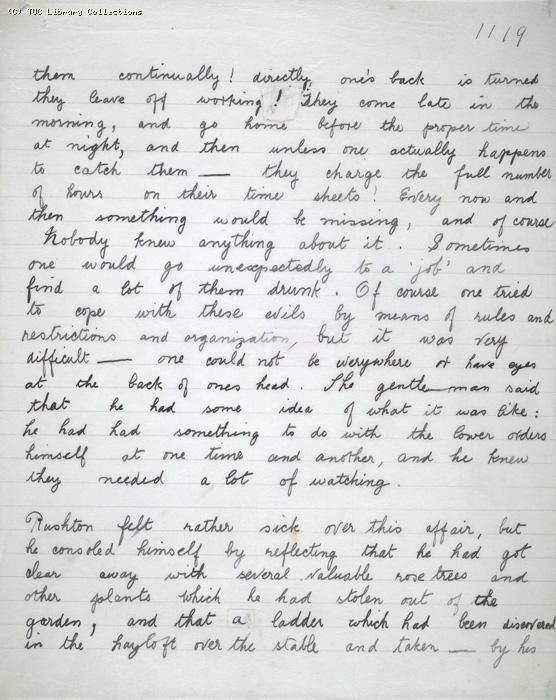 (C) TUC Library Collections
1119
them continually! directly one's back is turned
they leave off working! They come late in the
morning, and go home before the proper time
at night, and then unless one actually happens
to catch them — they charge the full number
of hours on their time sheets! Every now and
then something would be missing, and of course
Nobody knew anything about it. Sometimes
one would go unexpectedly to a 'job' and
find a lot of them drunk. Of course one tried
to cope with these evils by means of rules and
restrictions and organization, but it was very
difficult — one could not be everywhere or have eyes
at the back of ones head. The gentleman said
that he had some idea of what it was like:
he had had something to do with the lower orders
himself at one time and another, and he knew
they needed a lot of watching.
Rushton felt rather sick over this affair, but
he consoled himself by reflecting that he had got
clear away with several valuable rose trees and
other plants which he had stolen out of the
garden, and that a ladder which had been discovered
in the hayloft over the stable and taken — by his